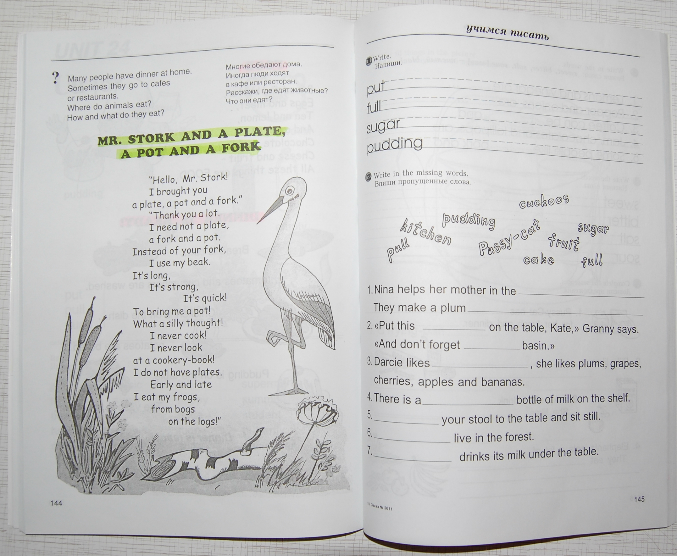 ?
Many people have dinner at home.
Sometimes they go to cafes
or restaurants.
Where do animals eat?
How and what do they eat?
Многие обедают дома.
Иногда люди ходят
в кафе или ресторан.
Расскажи, где едят животные?
Что они едят?
MR. STORK AND A PLATE,
A POT AND A FORK
"Hello, Mr. Stork!
I brought you
a plate, a pot and a fork."
"Thank you a lot.
I need not a plate,
a fork and a pot.
Instead of your fork,
I use my beak.
It's long,
It's strong,
It's quick!
To bring me a pot!
What a silly thought!
I never cook!
I never look
at a cookery-book!
I do not have plates.
Early and late
I eat my frogs,
from bogs
on the logs!"
144
учимся писать
Write.
Напиши.
put
full
sugar
pudding
Write in the missing words.
Впиши пропущенные слова.
cuckoos
pudding
kitchen
pull
Pussy-cat
sugar
fruit
cake
full
1. Nina helps her mother in the
They make a plum
2. «Put this on the table, Kate,» Granny says.
«And don't forget basin.»
3. Darcie likes , she likes plums, grapes,
cherries, apples and bananas.
4. There is a bottle of milk on the shelf.
5. your stool to the table and sit still.
6. live in the forest.
7. drinks its milk under the table.
145